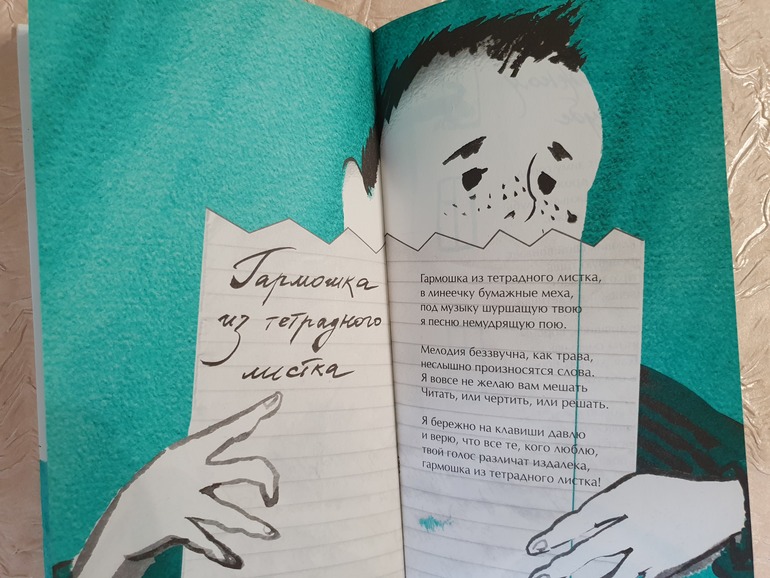 Гармошка
из тетрадного
листка
Гармошка из тетрадного листка,
в линеечку бумажные меха,
под музыку шуршащую твою
я песню немудрящую пою.
Мелодия беззвучна, как трава,
неслышно произносятся слова.
Я вовсе не желаю вам мешать
Читать, или чертить, или решать.
Я бережно на клавиши давлю
и верю, что все те, кого люблю,
твой голос различат издалека,
гармошка из тетрадного листка!